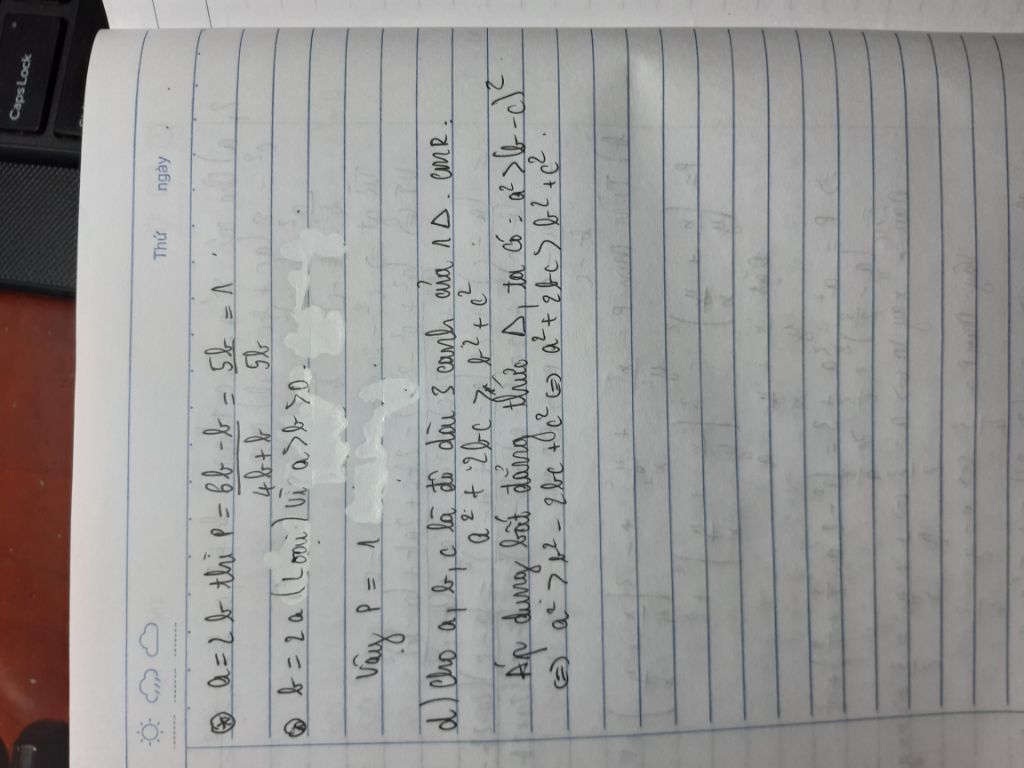 Caps Lock
Thứ ngày
⊛ a = 2b thì P = 6b - b / 4b + b = 5b / 5b = 1.
⊛ b = 2a (Loại) Vì a > b > 0.
Vậy P = 1
d) Cho a, b, c là độ dài 3 cạnh của 1 Δ. CMR:
a² + 2bc > b² + c²
Áp dụng bất đẳng thức Δ, ta có: a² > (b - c)²
⇔ a² > b² - 2bc + c² ⇔ a² + 2bc > b² + c².